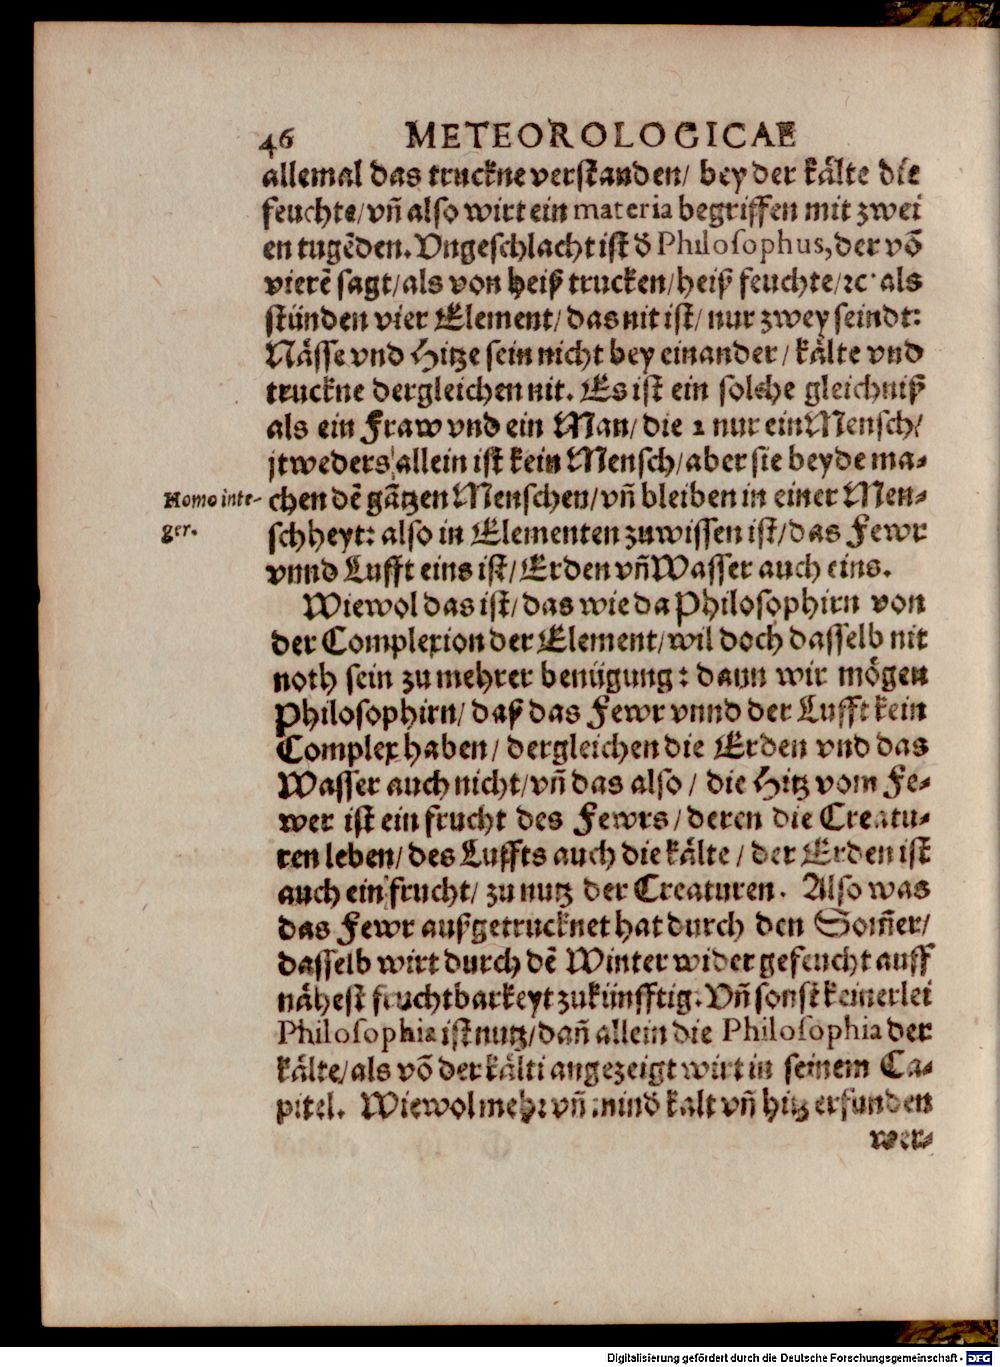 46 METEOROLOGICAE
allemal das truckne verstanden/ bey der kälte die
feuchte/ vñ also wirt ein materia begriffen mit zwei
en tugẽden. Vngeschlacht ist d̃ Philosophus, der võ
vierẽ sagt/ als von heiß trucken/ heiß feuchte/ ꝛc. als
stünden vier Element/ das nit ist/ nur zwey seindt:
Nässe vnd Hitze sein nicht bey einander/ kälte vnd
truckne dergleichen nit. Es ist ein solche gleichniß
als ein Fraw vnd ein Man/ die 2 nur ein Mensch/
jtweders allein ist kein Mensch/ aber sie beyde ma-
Homo inte-
ger.
chen dẽ gãtzen Menschen/ vñ bleiben in einer Men-
schheyt: also in Elementen zuwissen ist/ das Fewr
vnnd Lufft eins ist/ Erden vñ Wasser auch eins.
Wiewol das ist/ das wie da Philosophirn von
der Complexion der Element/ wil doch dasselb nit
noth sein zu mehrer benügung: dann wir mögen
Philosophirn/ daß das Fewr vnnd der Lufft kein
Complex haben/ dergleichen die Erden vnd das
Wasser auch nicht/ vñ das also/ die Hitz vom Fe-
wer ist ein frucht des Fewrs/ deren die Creatu-
ren leben/ des Luffts auch die kälte/ der Erden ist
auch ein frucht/ zu nutz der Creaturen. Also was
das Fewr außgetrucknet hat durch den Som̃er/
dasselb wirt durch dẽ Winter wider gefeucht auff
nähest fruchtbarkeyt zukünfftig. Vñ sonst keinerlei
Philosophia ist nutz/ dañ allein die Philosophia der
kälte/ als võ der kälti angezeigt wirt in seinem Ca-
pitel. Wiewol mehr vñ mind̃ kalt vñ hitz erfunden
wer-
Digitalisierung gefördert durch die Deutsche Forschungsgemeinschaft - DFG